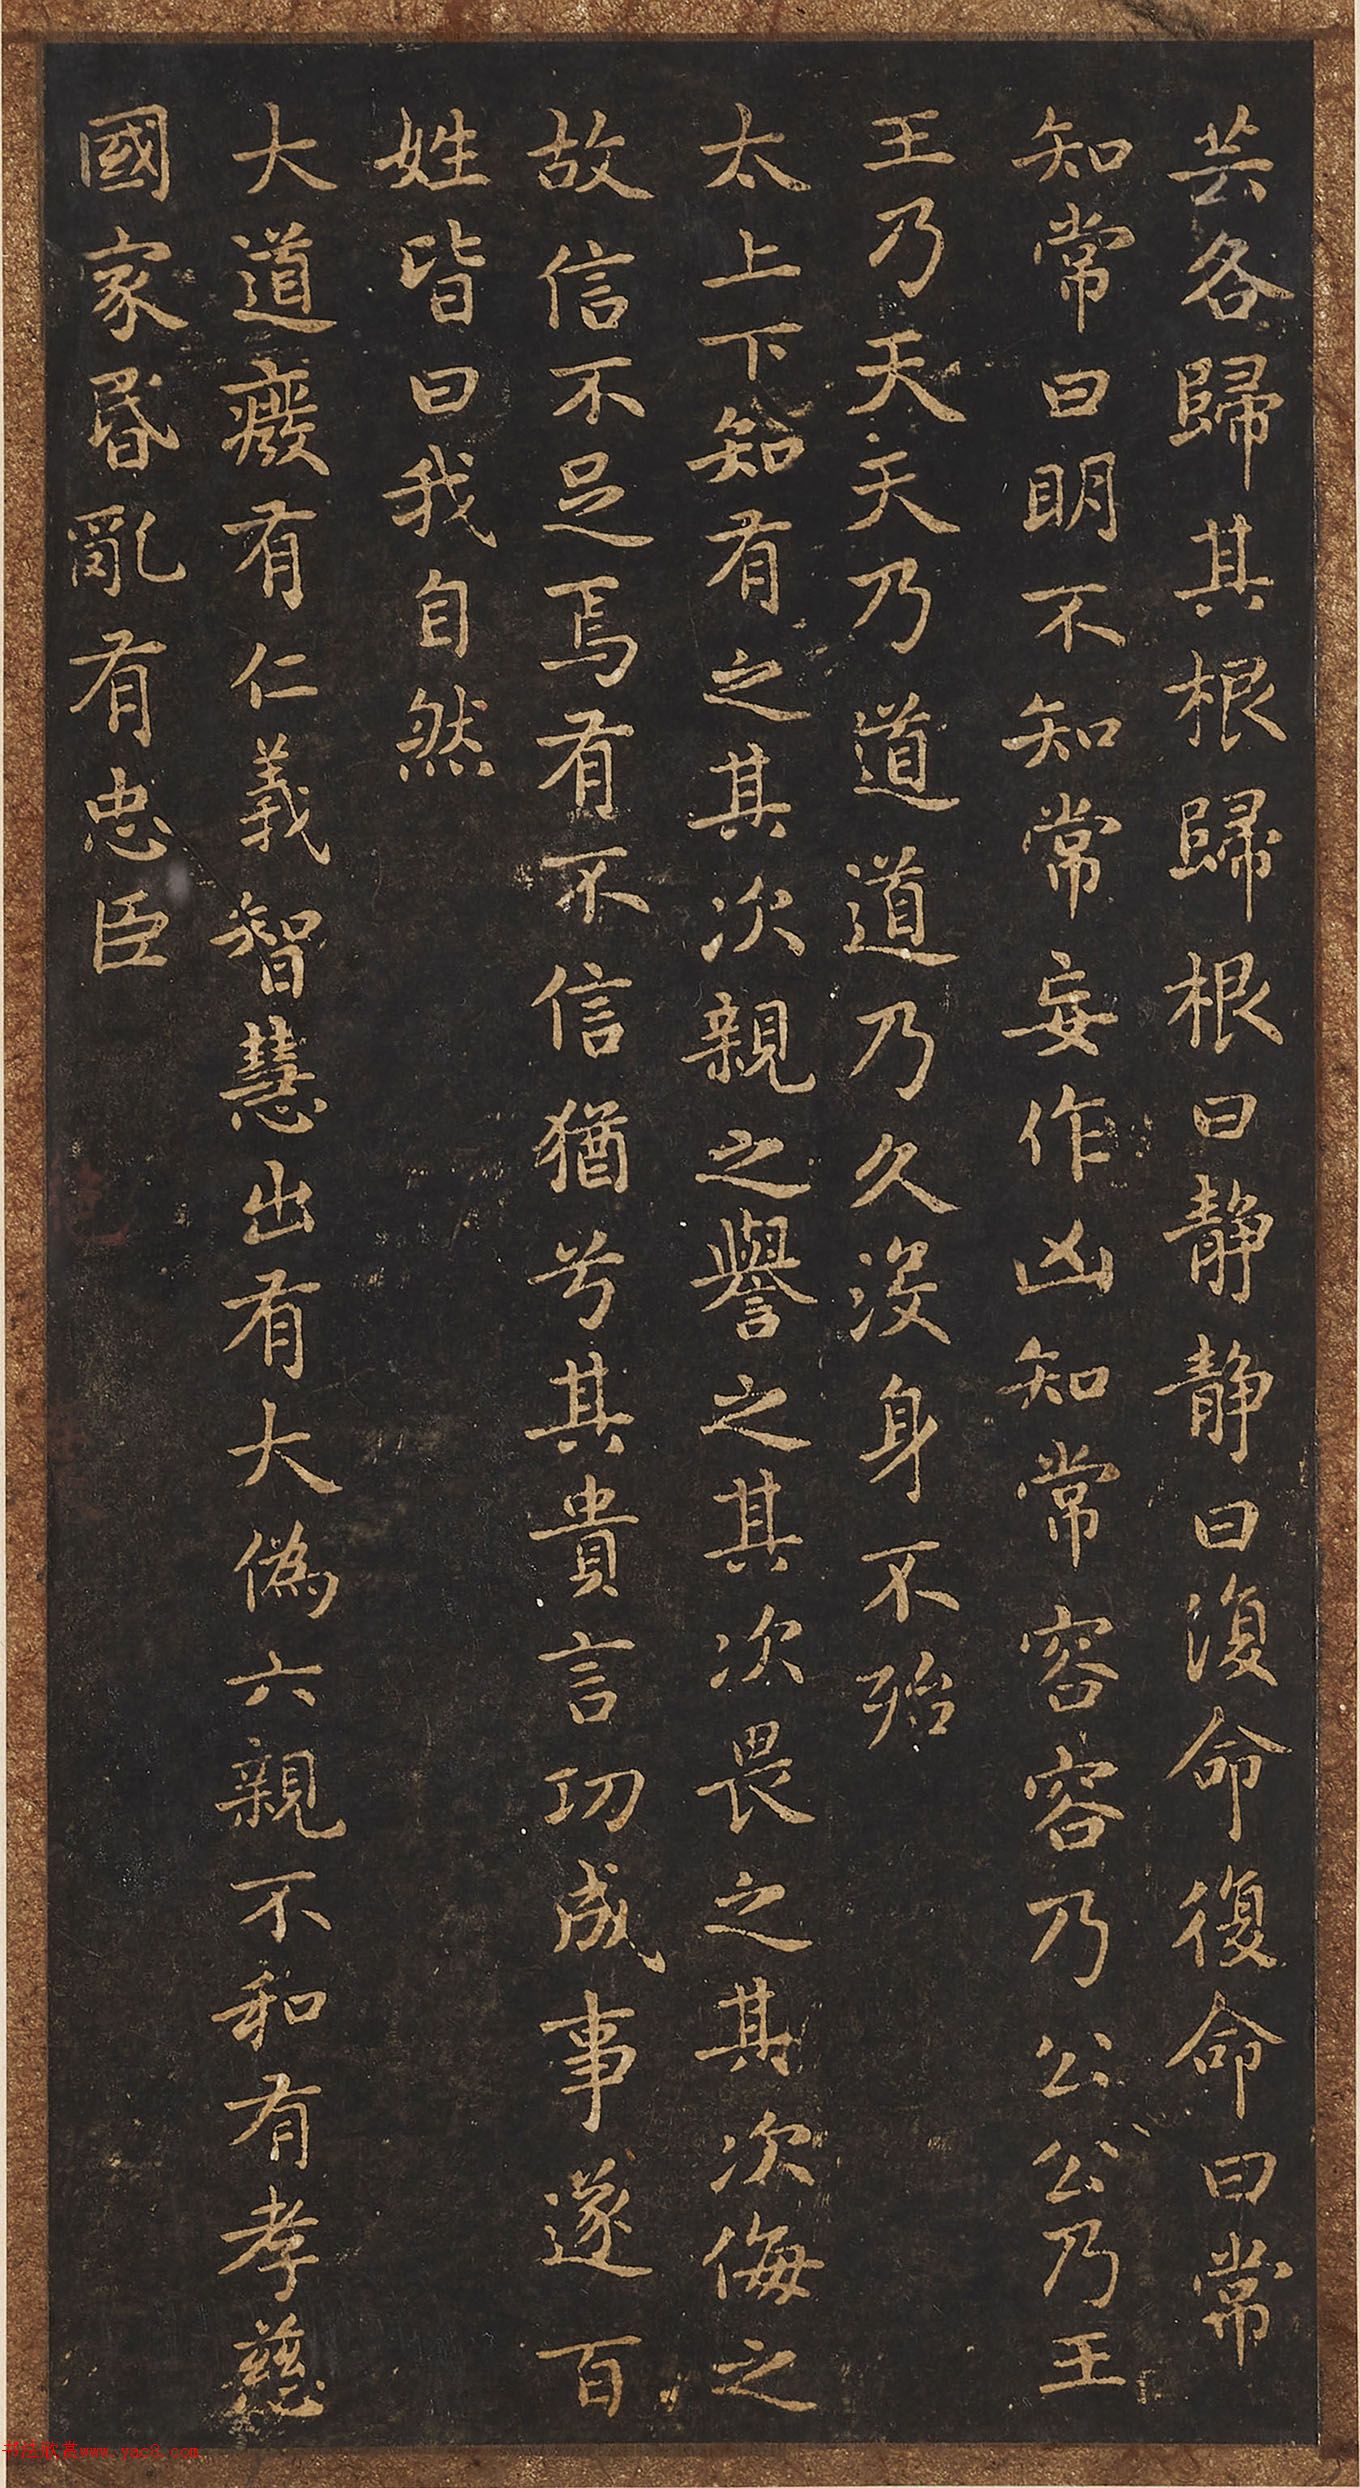 芸各歸其根歸根曰靜靜曰復命復命曰常
知常曰明不知常妄作凶知常容容乃公公乃王
王乃天天乃道道乃久沒身不殆
太上下知有之其次親之譽之其次畏之其次侮之
故信不足焉有不信猶兮其貴言功成事遂百
姓皆曰我自然
大道癈有仁義智慧出有大偽六親不和有孝慈
國家昬亂有忠臣
书法欣赏www.yac8.com